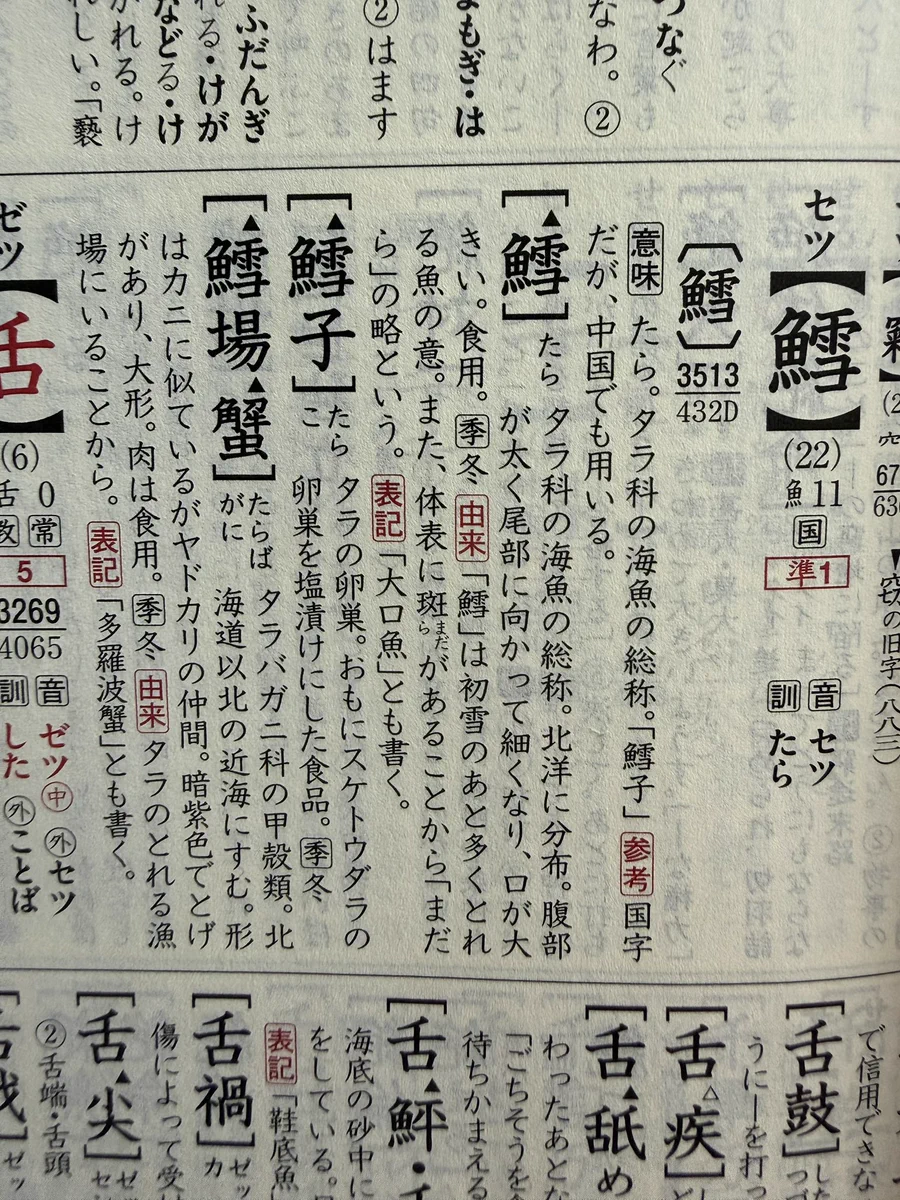 つなぐ
なわ。②
まもぎ・は
②はます
ふだんぎ
れる・けが
などる・け
かれる。け
れしい。「褻
セツ【鱈】(22) 魚11 国 準1 音 セツ 訓 たら
〔鱈〕3513 432D
意味 たら。タラ科の海魚の総称。「鱈子」 参考 国字
だが、中国でも用いる。
[▲鱈] たら タラ科の海魚の総称。北洋に分布。腹部
が太く尾部に向かって細くなり、口が大
きい。食用。季冬 由来「鱈」は初雪のあと多くとれ
る魚の意。また、体表に斑まだらがあることから「まだ
ら」の略という。 表記「大口魚」とも書く。
[▲鱈子] たらこ タラの卵巣。おもにスケトウダラの
卵巣を塩漬けにした食品。季冬
[▲鱈場▲蟹] たらばがに タラバガニ科の甲殻類。北
海道以北の近海にすむ。形
はカニに似ているがヤドカリの仲間。暗紫色でとげ
があり、大形。肉は食用。季冬 由来 タラのとれる漁
場にいることから。 表記「多羅波蟹」とも書く。
ゼツ【舌】(6) 舌0 教 常 5 3269 4065 音 ゼツ中 外セツ 訓 した 外ことば
▼窃の旧字(八八三)
で信用できな
[舌鼓]
うに―を打っ
[舌△疾]
[舌▲舐]
わったあとな
「ごちそうを
待ちかまえる
[舌▲鮃・
海底の砂中に
をしている。
表記「鞋底魚」
[舌禍]
傷によって受
[舌▲尖]
②舌端・舌頭